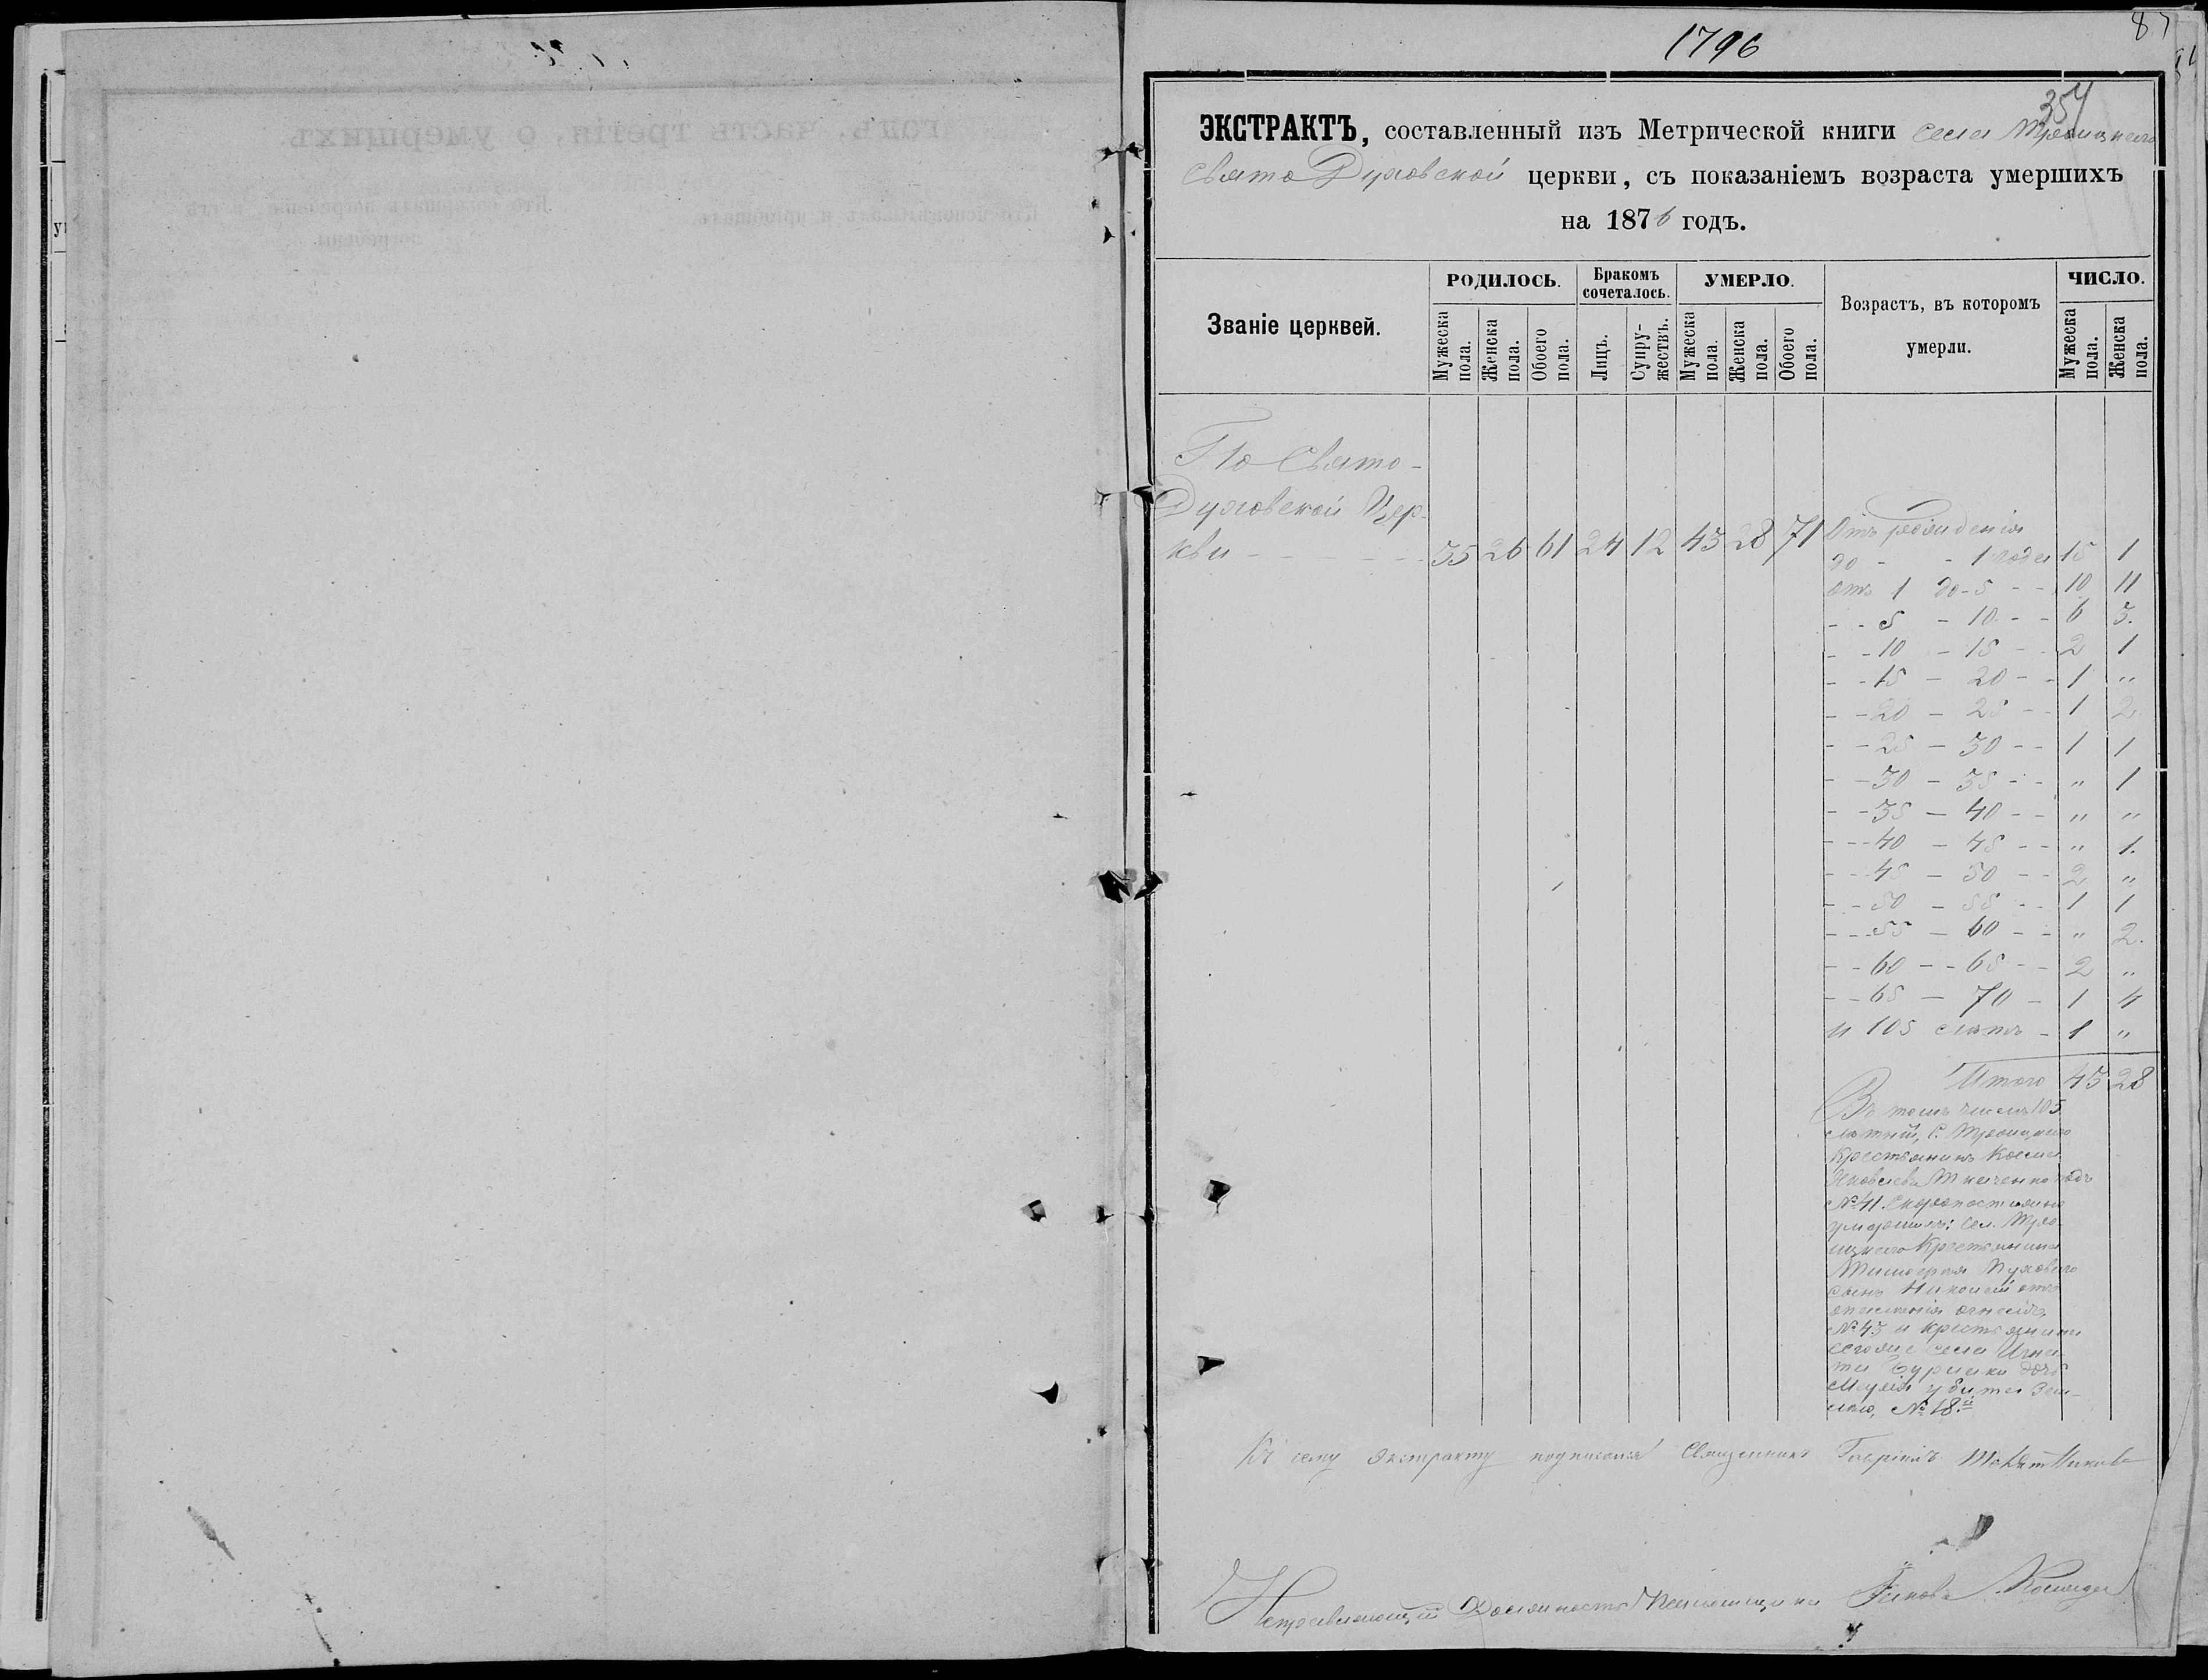 1796
87
354
ЭКСТРАКТЪ, составленный изъ Метрической книги села Троицкаго
Свято Духовской церкви, съ показаніемъ возраста умершихъ
на 1876 годъ.
Званіе церквей.
РОДИЛОСЬ.
Бракомъ сочеталось.
УМЕРЛО.
Возрастъ, въ которомъ умерли.
ЧИСЛО.
Мужеска пола.
Женска пола.
Обоего пола.
Лицъ.
Супружествъ.
Мужеска пола.
Женска пола.
Обоего пола.
Мужеска пола.
Женска пола.
По Свято-
Духовской Цер-
кви - - - - 35 26 61 24 12 43 28 71
Отъ рожденія
до - - 1 года 15 1
отъ 1 до - 5 - - 10 11
- - 5 - 10 - - 6 3.
- - 10 - 15 - - 2 1
- - 15 - 20 - - 1 "
- - 20 - 25 - - 1 2.
- - 25 - 30 - - 1 1
- - 30 - 35 - - " 1
- - 35 - 40 - - " "
- - 40 - 45 - - " 1.
- - 45 - 50 - - 2 "
- - 50 - 55 - - 1 1
- - 55 - 60 - - " 2.
- - 60 - - 65 - - 2 "
- - 65 - 70 - 1 4
и 105 лѣтъ - 1 "
Итого 43 28
Въ томъ числѣ 105
лѣтній, С. Троицкаго
Крестьянинъ Косма
Яковлевъ Ткаченко подъ
№ 41. Скоропостижно
умершихъ: Сел. Трои-
цкаго Крестьянина
сынъ Николай отъ
№ 43 и крестьянина
сегоже села Игна-
та дочь
Марія убита зем-
лею, № 18.й
Къ сему Экстракту подписался Священникъ Гавріилъ
Исправляющій Должность Псаломщика Яковъ